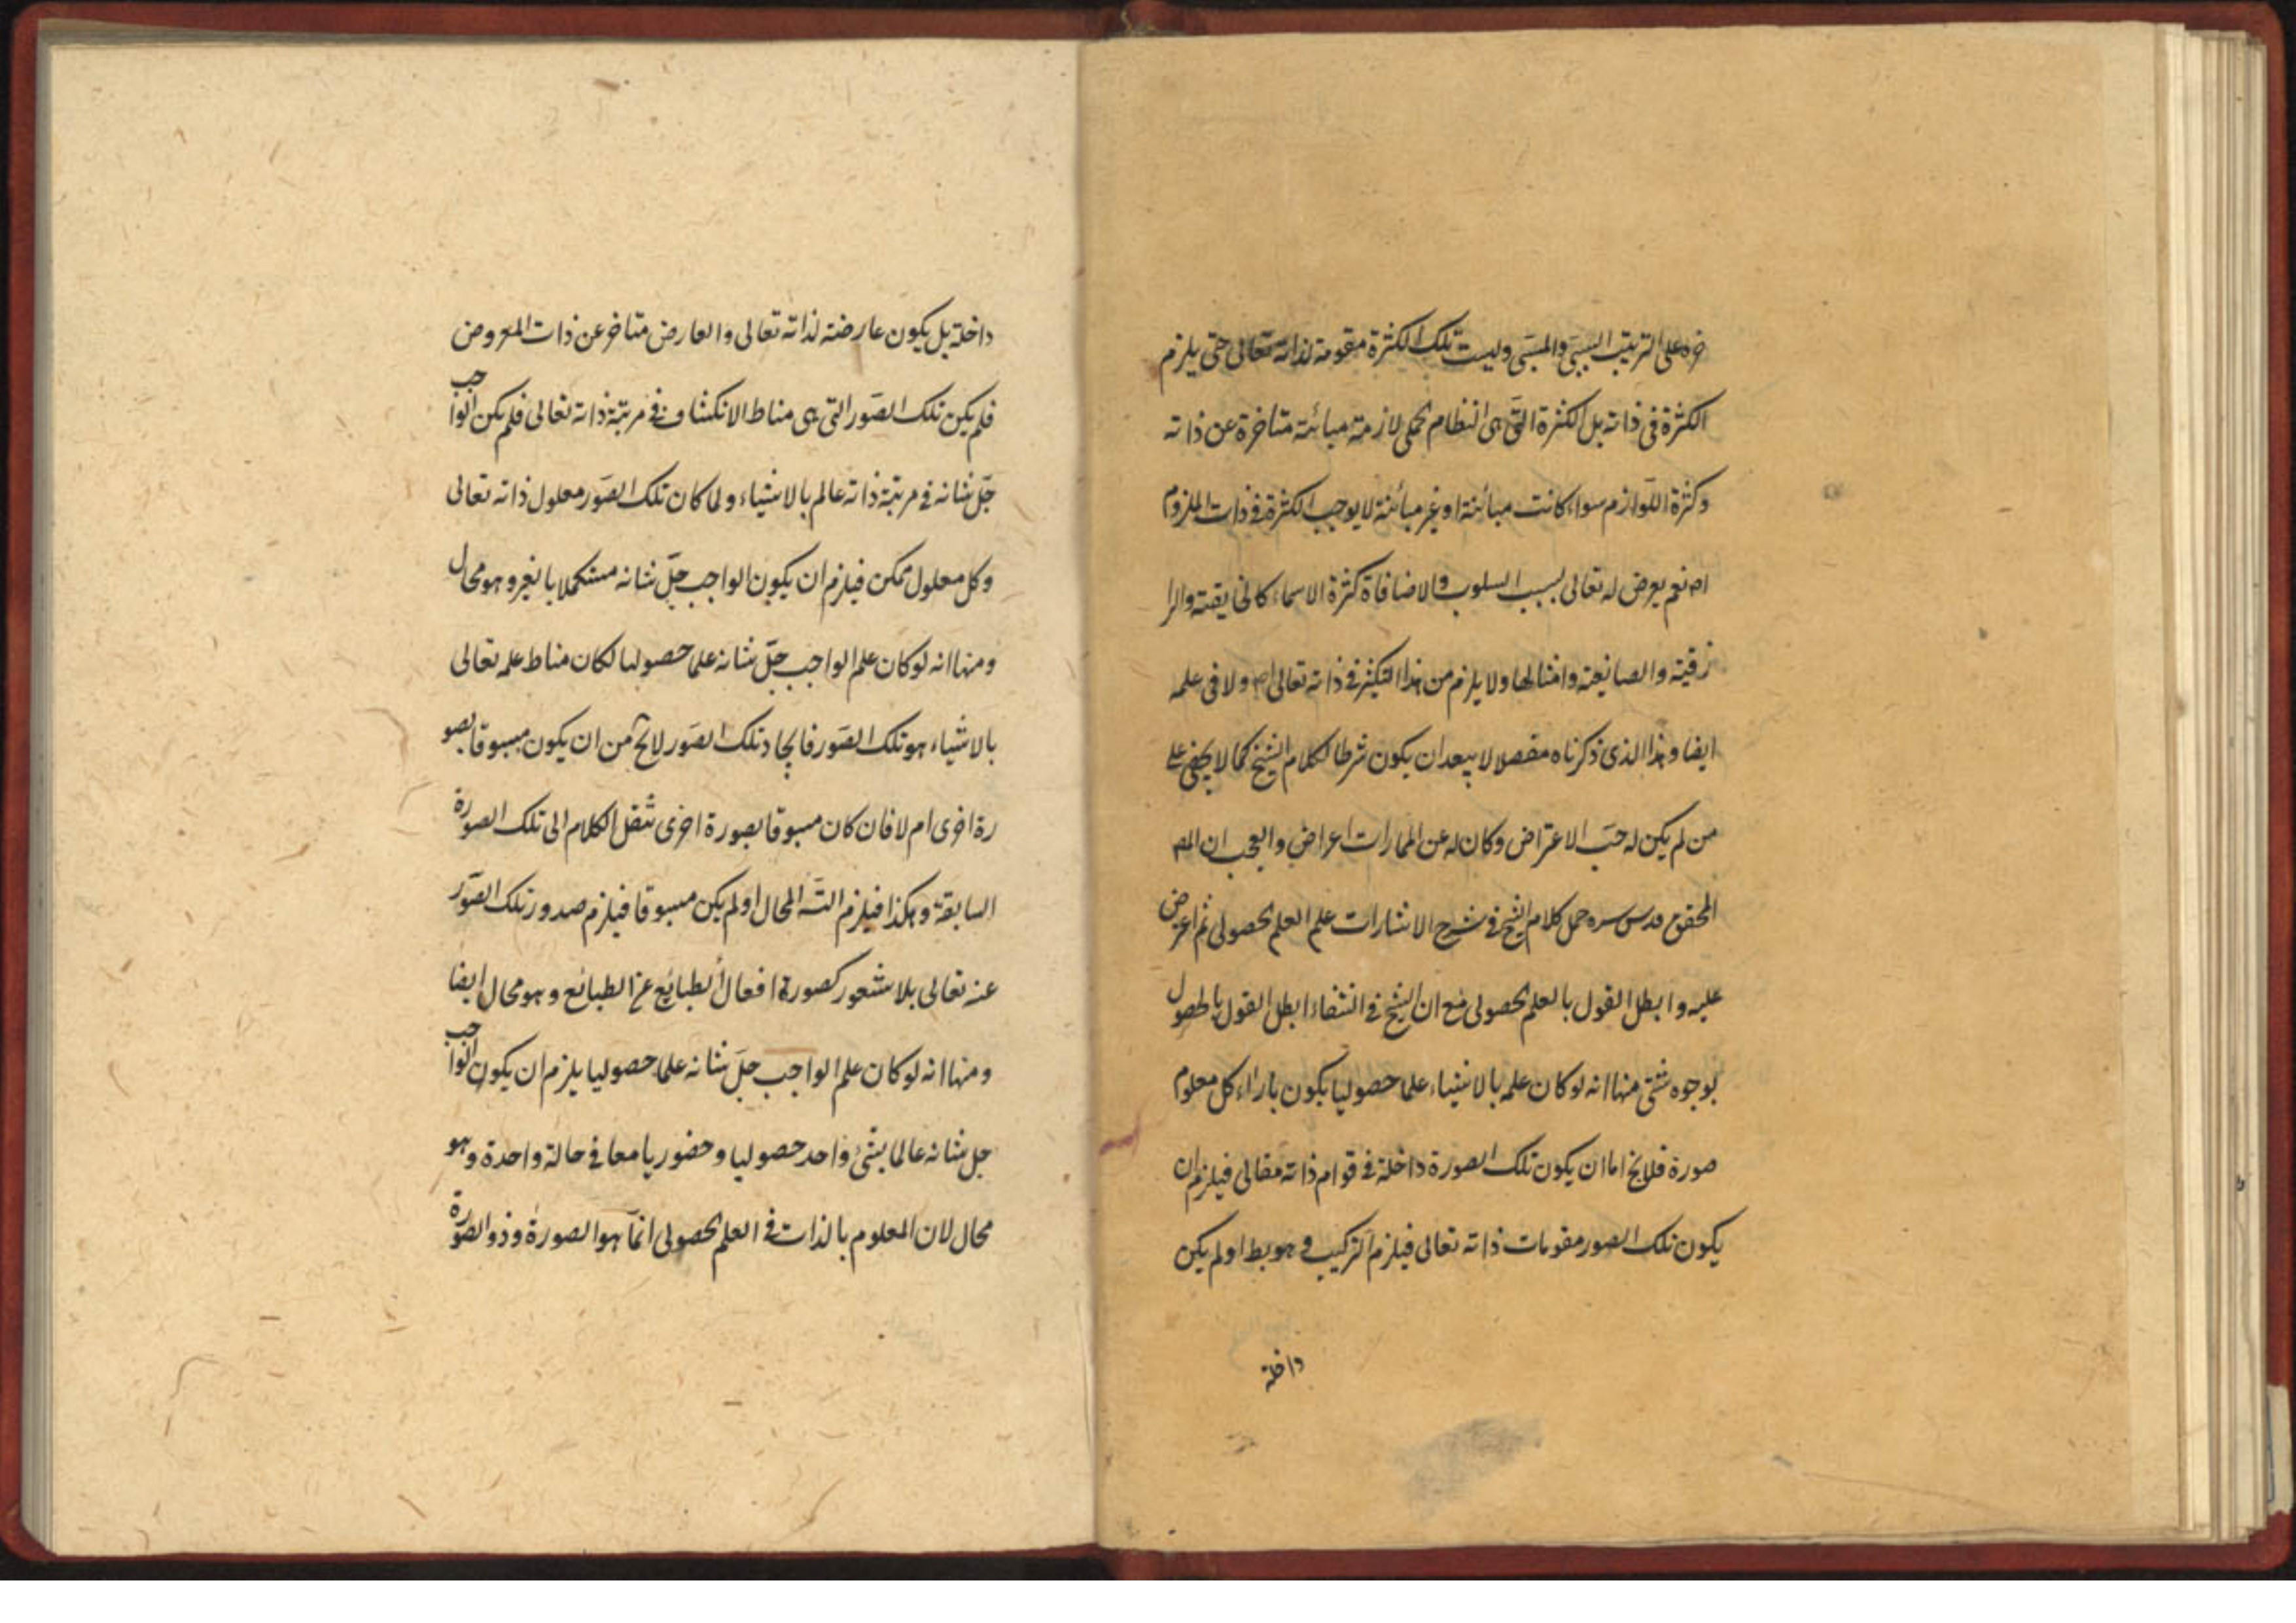 خره على الترتيب السببى والمسببى وليست تلك الكثرة مقومة لذاته تعالى حتى يلزم
الكثرة فى ذاته بل الكثرة التى هى انتظام جملى لازمة مبائنة متاخرة عن ذاته
وكثرة اللوازم سواء كانت مبائنة او غير مبائنة لا يوجب الكثرة فى ذات الملزوم
اص نعم يعرض له تعالى بسبب السلوب والاضافاة كثرة الاسماء كالخايقته والرا
زقية والصانيعته وامثالها ولا يلزم من هذا التكثر فى ذاته تعالى اص ولا فى علمه
ايضا وهذا الذى ذكرناه مفصلا لا يبعد ان يكون شرطا لكلام الشيخ كما لا يخفى على
من لم يكن له حبّ الاعتراض وكان له عن الممارات اعراض والعجب ان المص
المحقق قدس سره حمل كلام الشيخ فى شرح الاشارات علم العلم الحصولى ثم اعترض
عليه وابطل القول بالعلم الحصولى مع ان الشيخ فى الشفاء ابطل القول بالحصول
بوجوه شتى منها انه لو كان علمه بالاشياء علما حصوليا يكون بازاء كل معلوم
صورة فلا يخ اما ان يكون تلك الصورة داخلة فى قوام ذاته تعالى فيلزم ان
يكون تلك الصور مقومات ذاته تعالى فيلزم التركيب وهو بط او لم يكن
داخلة
داخلة بل يكون عارضته لذاته تعالى والعارض متاخر عن ذات المعروض
فلم يكن تلك الصّور التى هى مناط الانكشاف فى مرتبة ذاته تعالى فلم يكن الواجب
جلّ شانه فى مرتبة ذاته عالم بالاشياء ولما كان تلك الصّور معلول ذاته تعالى
وكل معلول ممكن فيلزم ان يكون الواجب جلّ شانه مستكملا بالغير وهو محال
ومنها انه لو كان علم الواجب جلّ شانه علما حصوليا لكان مناط علمه تعالى
بالاشياء هو تلك الصّور فايجاد تلك الصّور لا يخ من ان يكون مسبوقا بصو
رة اخرى ام لا فان كان مسبوقا بصورة اخرى ننقل الكلام الى تلك الصورة
السابقة وهكذا فيلزم التّه المحال او لم يكن مسبوقا فيلزم صدور تلك الصّور
عنه تعالى بلا شعور كصورة افعال الطبايع عن الطبائع وهو محال ايضا
ومنها انه لو كان علم الواجب جلّ شانه علما حصوليا يلزم ان يكون الواجب
جل شانه عالما بشئ واحد حصوليا وحضوريا معا فى حالة واحدة وهو
محال لان المعلوم بالذات فى العلم الحصولى انمّا هو الصورة وذو الصّورة